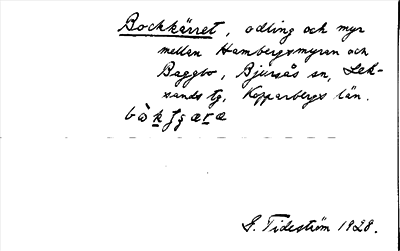 Bockkärret, odling och myr
mellan Hambergsmyran och
Baggbo, Bjursås sn, Lek-
sands tg, Kopparbergs län.
S. Tideström 1928.